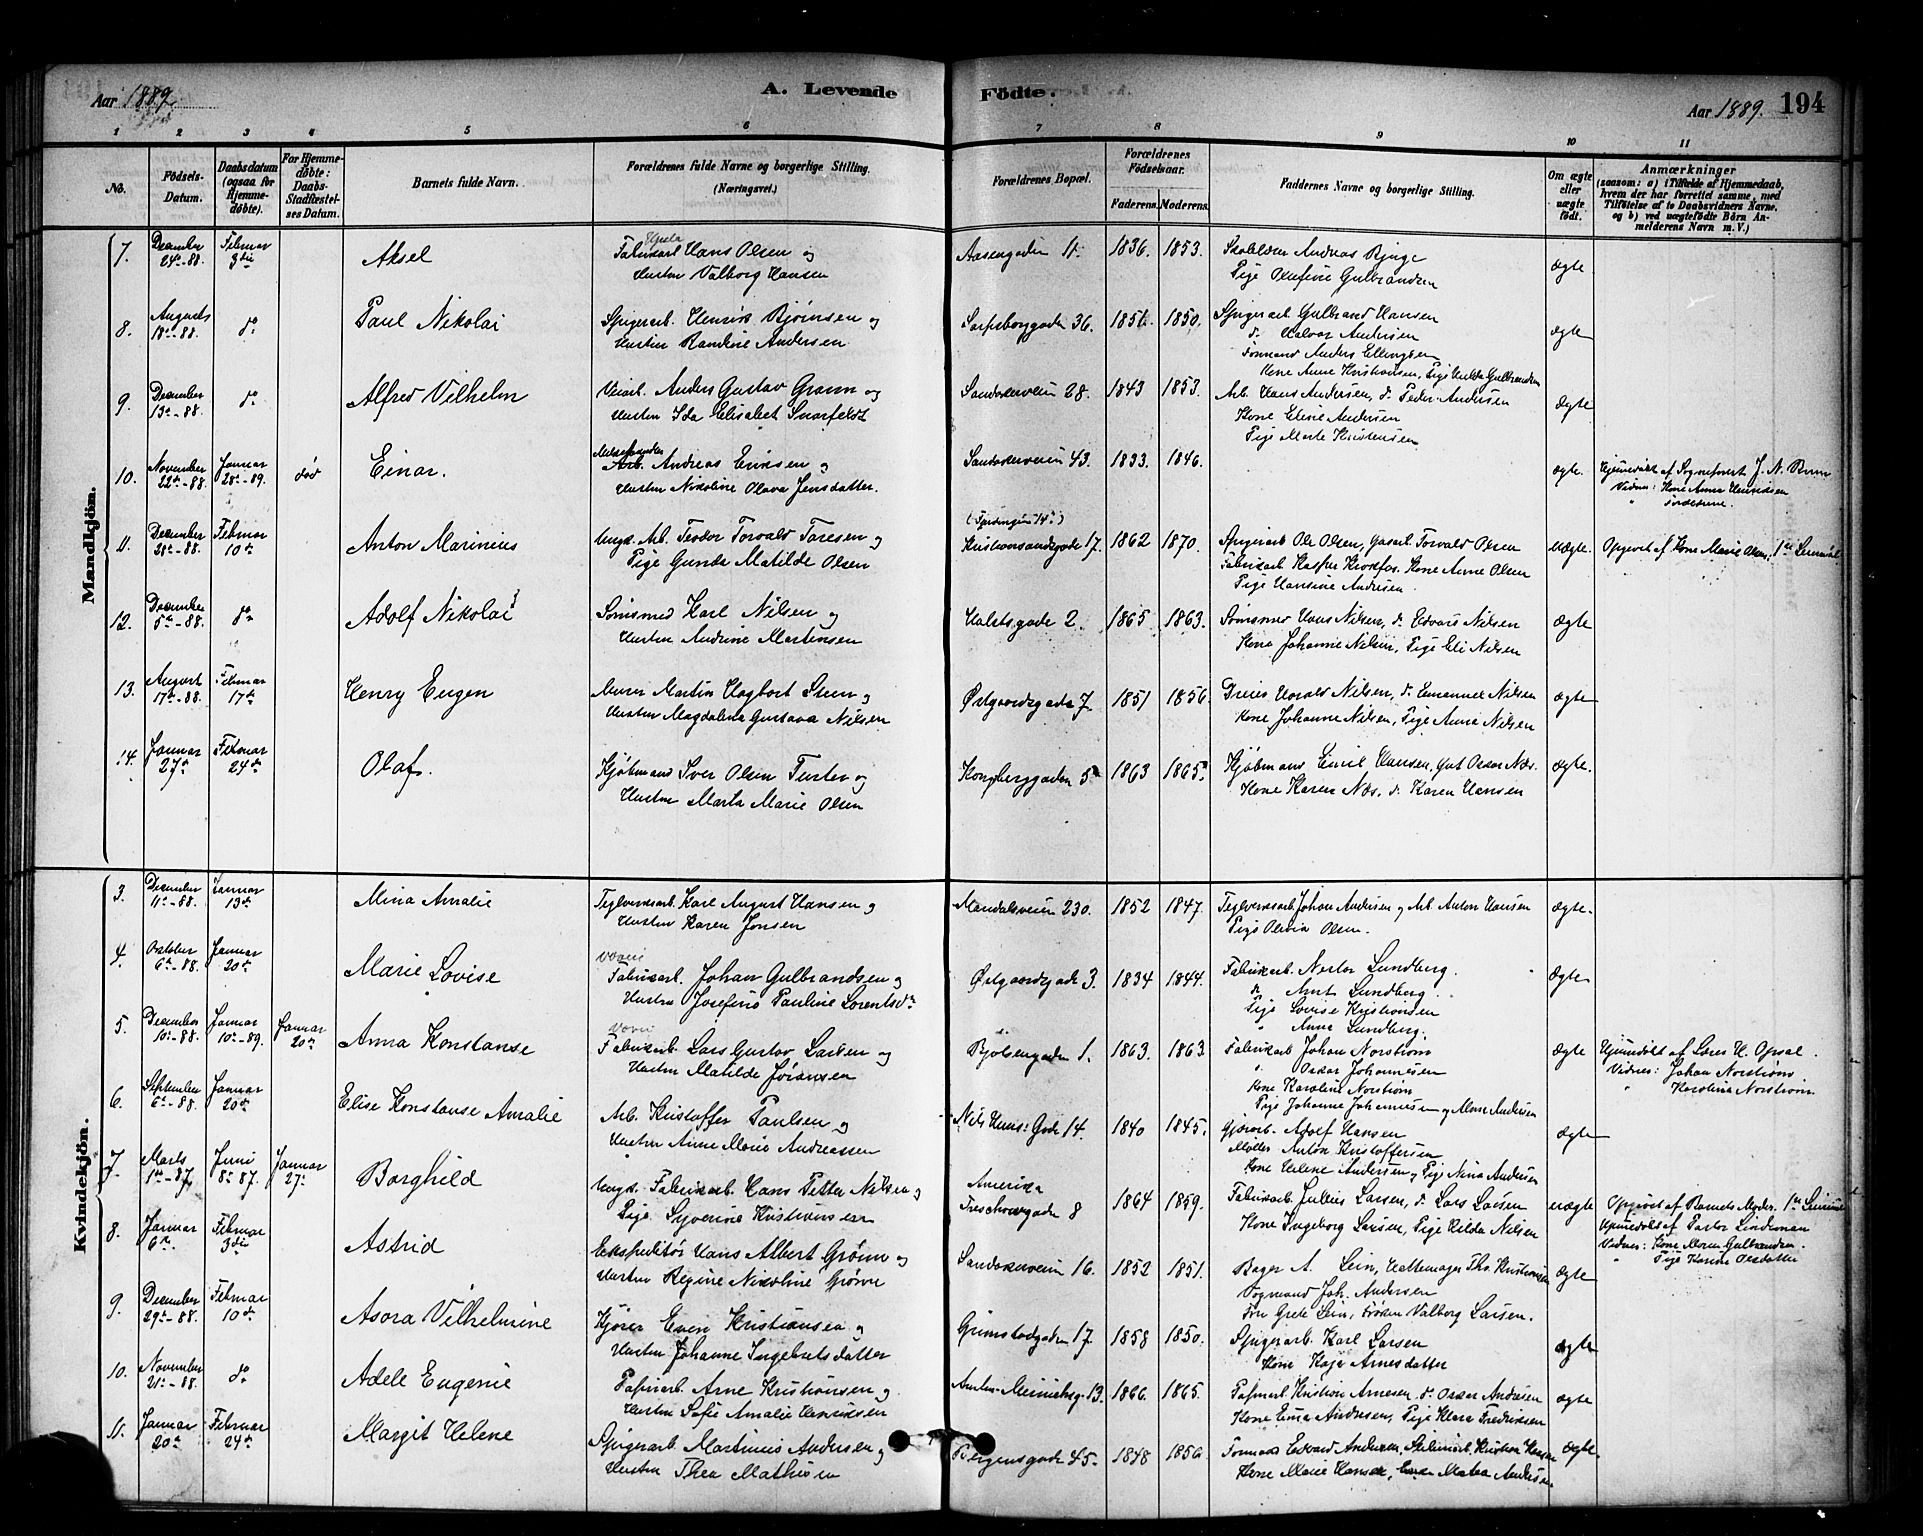 Aar 1889.
A. Levende
Födte.
Aar 1889. 194
1 2 3 4 5 6 7 8 9 10 11
No.
Födsels-Datum.
Daabsdatum (ogsaa for Hjemme-döbte).
For Hjemme-döbte: Daabs-Stadfæstel-ses Datum.
Barnets fulde Navn.
Forældrenes fulde Navne og borgerlige Stilling. (Næringsvei.)
Forældrenes Bopæl.
Forældrenes Födselsaar.
Faderens. Moderens.
Faddernes Navne og borgerlige Stilling.
Om ægte eller uægte födt.
Anmærkninger
(saasom: a) i Tilfælde af Hjemmedaab, hvem der har forrettet samme, med Tilföielse af to Daabsvidners Navne, og b) ved uægtefödte Börn An-melderens Navn m. V.)
Mandkjön.
7. December 24de-88. Februar 3die Aksel Fabrikarb. Hans Olsen og
Hustru Valborg Hansen
Aasengaden 11. 1836. 1853.
Pige Olufine Gulbrandsen
ægte
8. August 18de-88. do Paul Nikolai Spigerarb. Henrik Bjørnsen og
Hustru Randine Andersen
Sarpsborggaden 36. 1850. Spigerarb. Gulbrand Hansen
do Halvor Andersen
Formand Anders Ellingsen
Kone Anne Kristiansen, Pige Hulda Gulbrandsen
ægte
9. December 13de-88. do Alfred Vilhelm Anders Gustav Grann og
Hustru Ida Elisabet
Sandakerveien 28. 1843 1853. Arb. Hans Andersen, do Peder Andersen
Kone Eline Andersen
Pige Marte Kristensen
ægte
10. November 22de-88. Januar 28de-89. död Einar. Arb. Andreas Eriksen og
Hustru Nikoline Olava Jensdatter.
Sandakerveien 43. 1833. 1846. ægte. Hjemmedöbt af Sognepræst J. N. Brun
Vidner: Kone Anna Henriksen
11. December 28de-88. Februar 10de Anton Marinius Ungk. Arb. Teodor Torvald Taresen og
Pige Gunda Matilde Olsen
Kristiansandsgade 17. 1862 1870. Spigerarb. Ole Olsen, Torvald Olsen
Fabrikarb. Kasper Krokfos. Kone Anne Olsen
Pige Hansine Andersen.
uægte. Opgivet af Kone Marie Olsen. 1ste Leiermaal
12. December 5te-88. do Adolf Nikolai Sömsmed Karl Nilsen og
Hustru Andrine Martinsen
Halstsgade 2. 1865 1863. Sömsmed Hans Nilsen, do Edvard Nilsen
Kone Johanne Nilsen, Pige Eli Nilsen
ægte
13. August 17de-88. Februar 17de Henry Eugen Murer Martin Hagbart Steen og
Hustru Magdalena Gustava Nilsen
Østgaardsgade 7. 1851 1856. Dreier Harald Nilsen, do Emanuel Nilsen
Kone Johanne Nilsen, Pige Anna Nilsen
ægte
14. Januar 27de Februar 24de Olaf. Kjøbmand Iver Olsen og
Hustru Marta Marie Olsen
Kongberggaden 5 1863 1865. Kjøbmand Emil Hansen, Oskar Næs.
Kone Karen Næs. do Karen Hansen
ægte.
Kvindekjön.
3. December 11te-88. Januar 13de Mina Amalie Teglverksarb. Karl August Hansen og
Hustru Karen Jonsen
Mandalsveien 230. 1852 1847. Teglverksarb. Johan Andersen og Arb. Anton Hansen
Pige Olivia Olsen.
ægte.
4. October 6te-88. Januar 20de Marie Lovise Fabrikarb. Johan Gulbrandsen og
Hustru Josefine Pauline Lorentsdr
Østgaardsgade 3. 1834 1844. Fabrikarb. Nestor Lundberg.
do Arnt Lundberg.
Pige Lovise Kristiansen
" Anna Lundberg.
ægte
5. December 10de-88. Januar 10de-89. Januar 20de Anna Konstanse Fabrikarb. Lars Gustav Larsen og
Hustru Matilde Jøransen
Bjølsengaden 1. 1863. 1863 Fabrikarb. Johan Norstrøm
" Oskar Johannesen
Kone Karoline Norstrøm
Pige Johanne Johannesen og Alma Andersen
ægte Hjemmedöbt af Lars H. Opsal.
Vidner: Johan Norstrøm
" Karoline Norstrøm
6. September 6te-88. Januar 20de Elise Konstanse Amalie Arb. Kristoffer Paulsen og
Hustru Anne Marie Andreassen
Nils Huus: Gade 14. 1840 1845. Adolf Hansen
Møller Anton Kristoffersen
Kone Helene Andersen og Pige Nina Andersen
ægte
7. Marts 1ste-87. Juni 8de-87. Januar 27de Borghild Ungk. Fabrikarb. Hans Petter Nilsen og
Pige Syverine Kristiansen
Amerika
Treschowsgade 8 1864 1859. Fabrikarb. Julius Larsen, do Lars Larsen
Kone Ingeborg Larsen, Pige Hilda Nilsen
uægte Opgivet af Barnets Moder. 1ste Leiermaal
Hjemmedöbt af Pastor Lindeman
Vidner: Kone Maren Gulbrandsen.
" Pige Karine Olsdatter
8. Januar 6te Februar 3die Astrid Ekspeditør Hans Albert Grønn og
Hustru Regine Nikoline Grønn
Sandakerveien 16. 1852 1851. Bager A. Lein, Hattemager Ths Kristiansen
Vognmand Joh. Andersen
Fru Grete Lein, Frøken Valborg Larsen.
ægte
9. December 29de-88. Februar 10de Asora Vilhelmine Kjører Even Kristiansen og
Hustru Johanne Ingebretsdatter
Grimstadgaden 17 1858 1850. Spigerarb. Karl Larsen
Kone Kaja Arnesdatter
ægte
10. November 21de-88. do Adele Eugenie Papirarb. Arne Kristiansen og
Hustru Sofie Amalie Henriksen
13. 1866. 1865. Papirarb. Kristian Arnesen do Oskar Andresen
Kone Ema Andresen, Pige Klara Fredriksen
ægte
11. Januar 20de Februar 24de Margit Helene Spigerarb. Martinius Andersen og
Hustru Thea Mathisen
Bergensgade 45. 1848 1856. Formand Edvard Andersen, Kristian Hansen
Kone Marie Hansen, Matea Andersen
ægte.